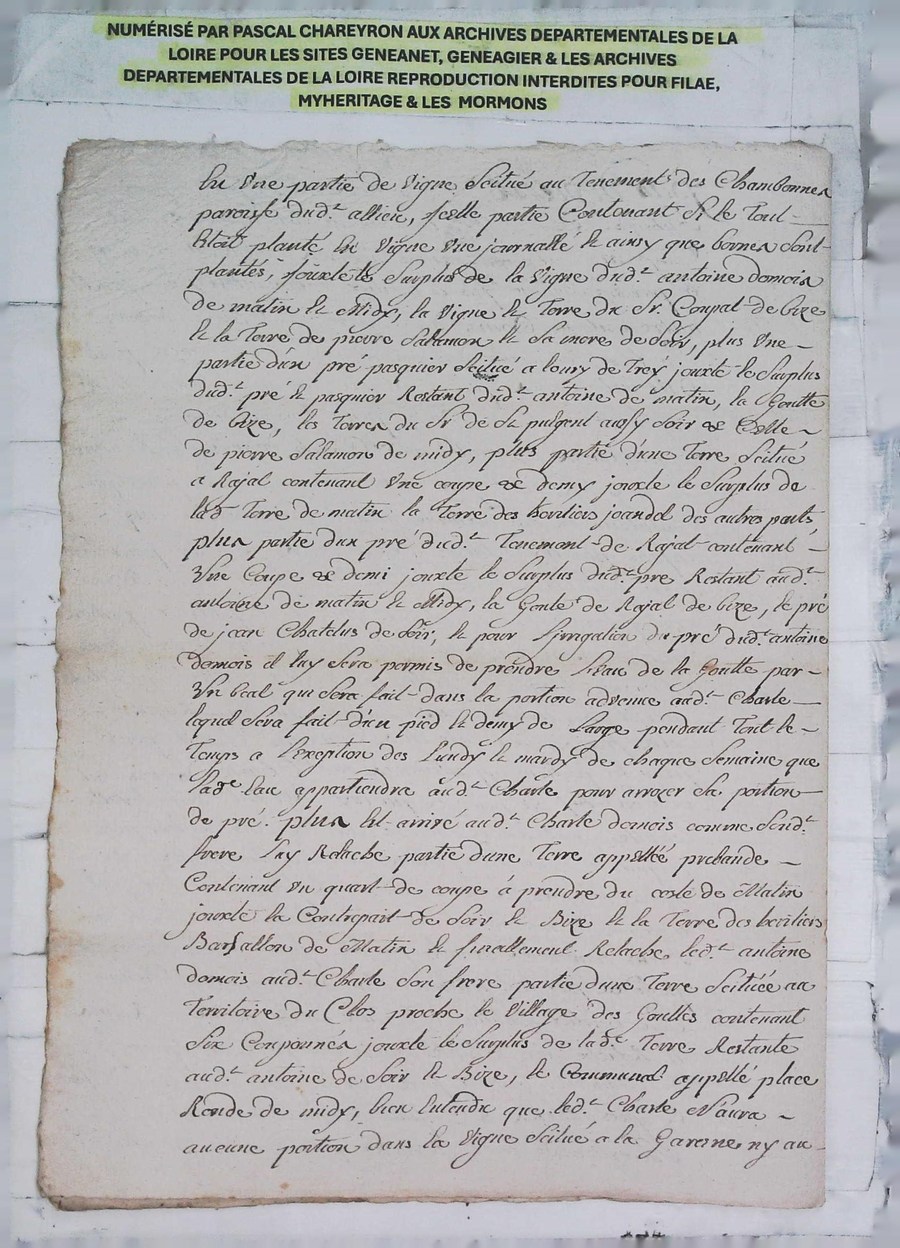 NUMÉRISÉ PAR PASCAL CHAREYRON AUX ARCHIVES DEPARTEMENTALES DE LA
LOIRE POUR LES SITES GENEANET, GENEAGIER & LES ARCHIVES
DEPARTEMENTALES DE LA LOIRE REPRODUCTION INTERDITES POUR FILAE,
MYHERITAGE & LES MORMONS
En Une partie de Vigne Scitué au Tenement des Chambonnes
paroisse dud.t allieu, Icelle partie Contenant Si le Tout
Etoit planté En Vigne Une journallé & ainsy que bornes Sont
plantés, Jouxte le Surplus de la Vigne dud.t antoine domois
de matin & Midy, la Vigne & Terre du Sr. Coupat de bize
& la Terre de pierre Salamon & Sa mere de Soir, plus Une
partie d'un pré pasquier Scitué a loury de Trey jouxte le Surplus
dud.t pré & pasquier Restant dud.t antoine de matin, la Goutte
de bize, les Terres du Sr de St pulgent aussy Soir & Celle
de pierre Salamon de midy, plus partie d'une Terre Scitué
a Rajat contenant Une coupe & demy jouxte le Surplus de
lad Terre de matin la Terre des heritiers joandel des autres parts,
plus partie d'un pré dud.t Tenement de Rajat contenant
Une Coupe & demi jouxte le Surplus dud.t pre Restant aud.t
antoine de matin & Midy, la Goute de Rajat de bize, le pré
de jean Chatelus de Soir, & pour l'irrigation du pré dud.t antoine
domois il luy Sera permis de prendre l'eau de la Goutte par
Un beal qui Sera fait dans la portion advenue aud.t Charle
lequel Sera fait d'un pied & demy de Large pendant Tout le
Temps a l'exception des Lundy & mardy de chaque Semaine que
lad.e Eau appartiendra aud.t Charle pour arrozer Sa portion
de pré. plus Est arrivé aud.t Charle domois comme Sond.t
frere Luy Relache partie d'une Terre appellée prebande
Contenant Un quart de coupe à prendre du costé de Matin
jouxte la Contrepart de Soir & Bize & la Terre des heritiers
Barsallon de Matin & finallement Relache led.t antoine
domois aud.t Charle Son frere partie d'une Terre Scituée au
Territoire du Clos proche le Village des Gouttes contenant
Six Couponnés jouxte le Surplus de lad.e Terre Restante
aud.t antoine de Soir & Bize, le Communal appellé place
Ronde de midy, bien Entendu que led.t Charle N'aura
aucune portion dans la Vigne Scitué a la Garenne ny au